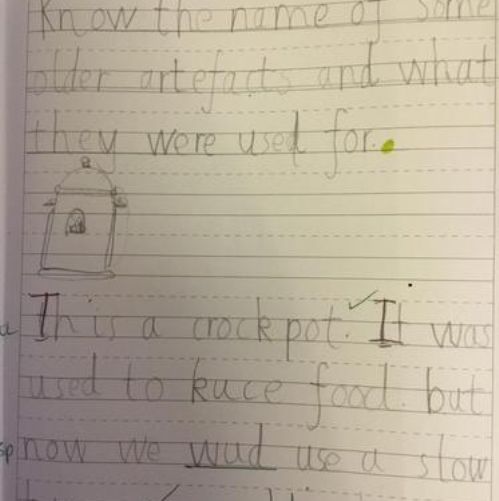 Know the name of some
older artefacts and what
they were used for.
This a crock pot. It was
used to kuce food. but
sp now we wud use a slow